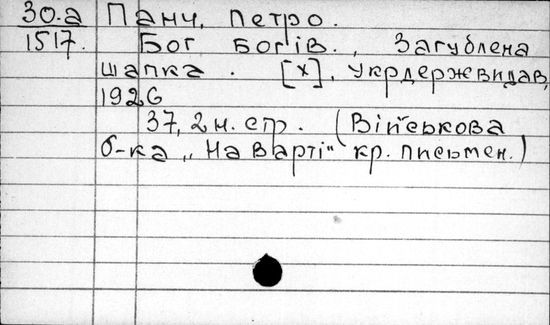 30.а Панч, Петро.
1517. Бог богів., Загублена
шапка. [х], Укрдержвидав,
1926
37, 2 н. стр. (Військова
б-ка „На варті" кр. письмен.)